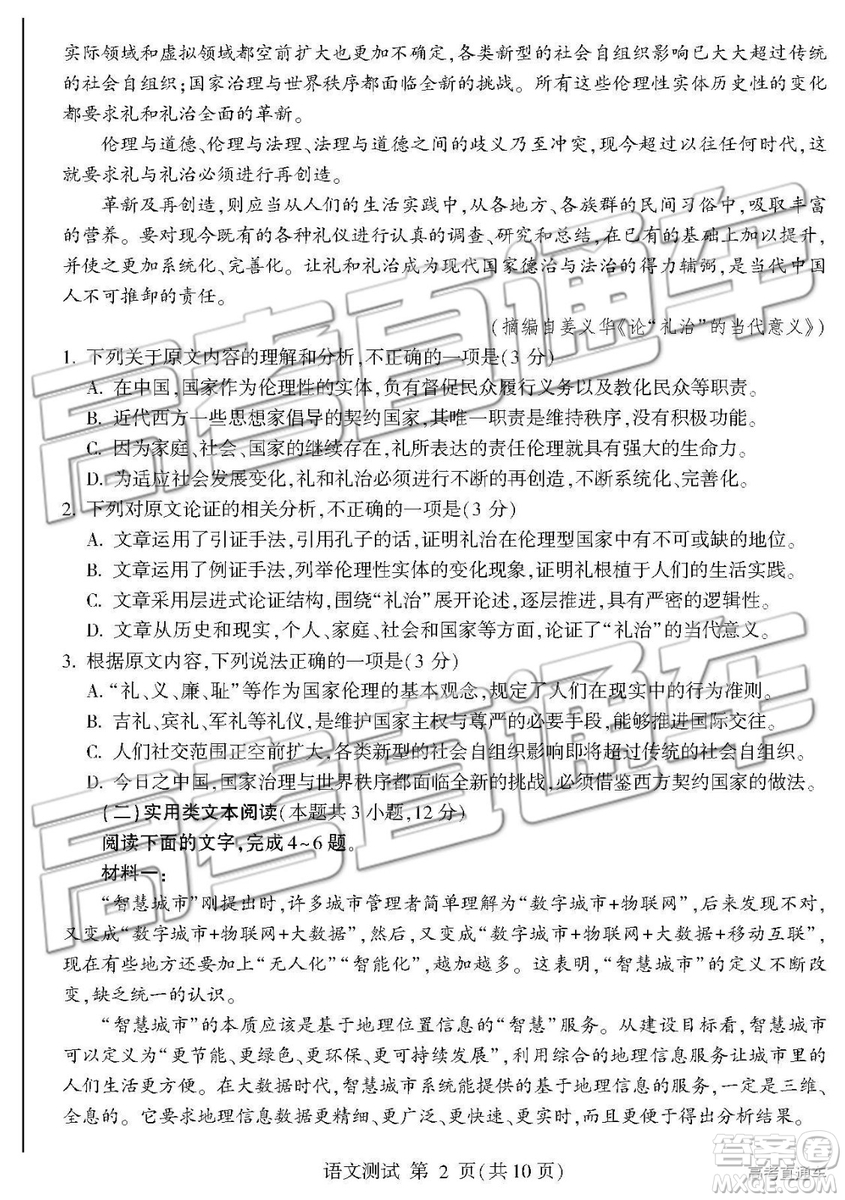 实际领域和虚拟领域都空前扩大也更加不确定,各类新型的社会自组织影响已大大超过传统
的社会自组织;国家治理与世界秩序都面临全新的挑战。所有这些伦理性实体历史性的变化
都要求礼和礼治全面的革新。
伦理与道德、伦理与法理、法理与道德之间的歧义乃至冲突,现今超过以往任何时代,这
就要求礼与礼治必须进行再创造。
革新及再创造,则应当从人们的生活实践中,从各地方、各族群的民间习俗中,吸取丰富
的营养。要对现今既有的各种礼仪进行认真的调查、研究和总结,在已有的基础上加以提升,
并使之更系统化、完善化。让礼和礼治成为现代国家德治与法治的得力辅弼,是当代中国
人不可推卸的责任。
(摘编自姜义华《论“礼治”的当代意义》)
1. 下列关于原文内容的理解和分析,不正确的一项是(3 分)
A. 在中国,国家作为伦理性的实体,负有督促民众履行义务以及教化民众等职责。
B. 近代西方一些思想家倡导的契约国家,其唯一职责是维持秩序,没有积极功能。
C. 因为家庭、社会、国家的继续存在,礼所表达的责任伦理就具有强大的生命力。
D. 为适应社会发展变化,礼和礼治必须进行不断的再创造,不断系统化、完善化。
2. 下列对原文论证的相关分析,不正确的一项是(3 分)
A. 文章运用了引证手法,引用孔子的话,证明礼治在伦理型国家中有不可或缺的地位。
B. 文章运用了例证手法,列举伦理性实体的变化现象,证明礼根植于人们的生活实践。
C. 文章采用层进式论证结构,围绕“礼治”展开论述,逐层推进,具有严密的逻辑性。
D. 文章从历史和现实,个人、家庭、社会和国家等方面,论证了“礼治”的当代意义。
3. 根据原文内容,下列说法正确的一项是(3 分)
A.“礼、义、廉、耻”等作为国家伦理的基本观念,规定了人们在现实中的行为准则。
B. 吉礼、宾礼、军礼等礼仪,是维护国家主权与尊严的必要手段,能够推进国际交往。
C. 人们社交范围正空前扩大,各类新型的社会自组织影响即将超过传统的社会自组织。
D. 今日之中国,国家治理与世界秩序都面临全新的挑战,必须借鉴西方契约国家的做法。
(二)实用类文本阅读(本题共 3 小题,12 分)
阅读下面的文字,完成 4~6 题。
材料一:
“智慧城市”刚提出时,许多城市管理者简单理解为“数字城市+物联网”,后来发现不对,
又变成“数字城市+物联网+大数据”,然后,又变成“数字城市+物联网+大数据+移动互联”,
现在有些地方还要加上“无人化”“智能化”,越加越多。这表明,“智慧城市”的定义不断改
变,缺乏统一的认识。
“智慧城市”的本质应该是基于地理位置信息的“智慧”服务。从建设目标看,智慧城市
可以定义为“更节能、更绿色、更环保、更可持续发展”,利用综合的地理信息服务让城市里的
人们生活更方便。在大数据时代,智慧城市系统能提供的基于地理信息的服务,一定是三维、
全息的。它要求地理信息数据更精细、更广泛、更快速、更实时,而且要便于得出分析结果。
语文测试 第 2 页(共 10 页)
高考直通车
高考直通车
答案圈
高考直通车
MXQE.COM